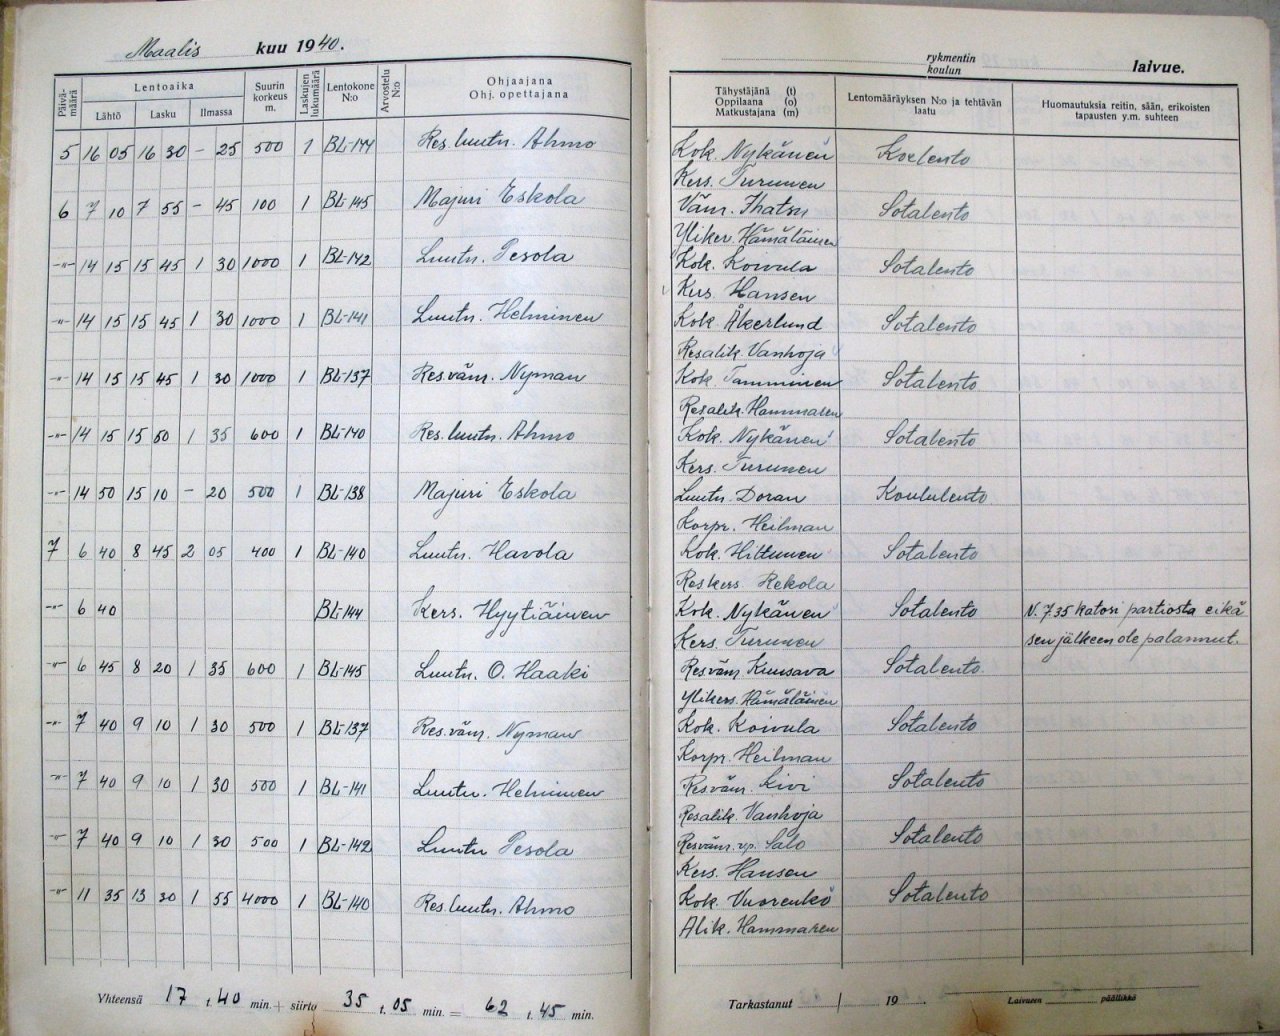 Maalis kuu 1940.
Päivämäärä Lentoaika Lähtö Lasku Ilmassa Suurin korkeus m. Laskujen lukumäärä Lentokone N:o Arvostelu N:o Ohjaajana Ohj. opettajana
5 16 05 16 30 – 25 500 1 BL-144 Res. luutn. Ahmo
6 7 10 7 55 – 45 100 1 BL-145 Majuri Eskola
-"- 14 15 15 45 1 30 1000 1 BL-142 Luutn. Pesola
-"- 14 15 15 45 1 30 1000 1 BL-141 Luutn. Helminen
-"- 14 15 15 45 1 30 1000 1 BL-137 Res.vänr. Nyman
-"- 14 15 15 50 1 35 600 1 BL-140 Res. luutn. Ahmo
-"- 14 50 15 10 – 20 500 1 BL-138 Majuri Eskola
7 6 40 8 45 2 05 400 1 BL-140 Luutn. Havola
-"- 6 40 BL-144 Kers. Hyytiäinen
-"- 6 45 8 20 1 35 600 1 BL-145 Luutn. O. Haaki
-"- 7 40 9 10 1 30 500 1 BL-137 Res.vänr. Nyman
-"- 7 40 9 10 1 30 500 1 BL-141 Luutn. Helminen
-"- 7 40 9 10 1 30 500 1 BL-142 Luutn Pesola
-"- 11 35 13 30 1 55 4000 1 BL-140 Res. luutn. Ahmo
Yhteensä 17 t. 40 min. + siirto 35 t. 05 min. = 62 t. 45 min.
rykmentin
koulun laivue.
Tähystäjänä (t)
Oppilaana (o)
Matkustajana (m)
Lentomääräyksen N:o ja tehtävän laatu
Huomautuksia reitin, sään, erikoisten tapausten y.m. suhteen
Kok. Nykänen Koelento
Kers. Turunen
Vänr. Ihatsu Sotalento
Yliker. Hämäläinen
Kok. Koivula Sotalento
Kers. Hansen
Kok. Åkerlund Sotalento
Resalik. Vanhoja
Kok. Tamminen Sotalento
Resalik. Hammaren
Kok. Nykänen Sotalento
Kers. Turunen
Luutn. Doran Koululento
Korpr. Heilman
Kok. Hiltunen Sotalento
Reskers. Rekola
Kok. Nykänen Sotalento N. 7 35 katosi partiosta eikä
Kers. Turunen sen jälkeen ole palannut.
Resvänr Kuusava Sotalento.
Ylikers. Hämäläinen
Kok. Koivula Sotalento
Korpr. Heilman
Resvänr. Kivi Sotalento
Resalik. Vanhoja
Resvänr. vp. Salo Sotalento
Kers. Hansen
Kok. Vuorenko Sotalento
Alik. Hammaren
Tarkastanut / 19 . Laivueen päällikkö